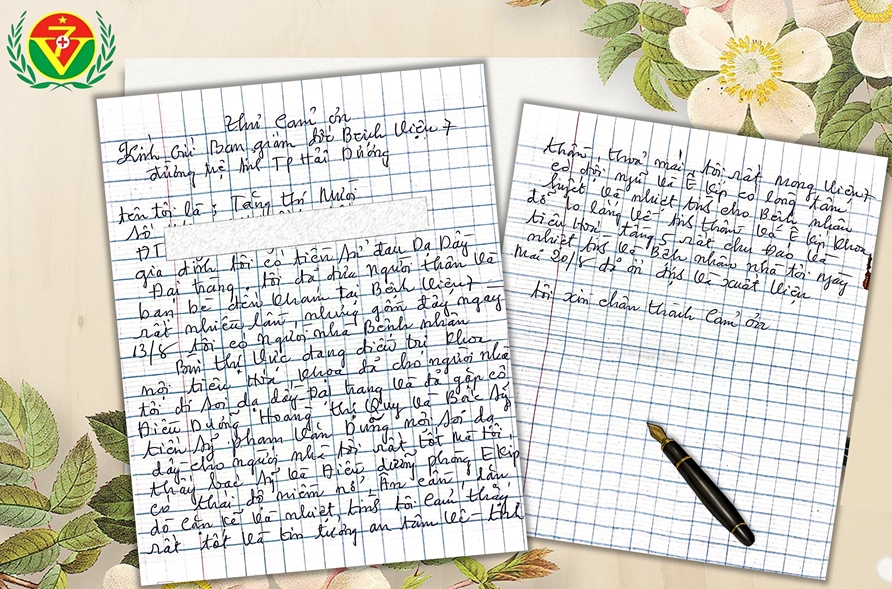 Thư Cảm ơn
Kính Gửi Ban giám đốc Bệnh Viện 7
đường tuệ tĩnh TP Hải Dương
tên tôi là: Tăng thí Mười
số
ĐT
gia đình tôi có tiền sử đau Dạ Dầy
Đại trang, tôi đã đưa người thân và
bạn bè đến kham tại Bệnh Viện 7
rất nhiều lần, nhưng gồm đây ngay
13/8 tôi có người nhà Bệnh nhân
thị Vực đang điều trị khoa
nội tiêu Hóa khoa đã cho người nhà
tôi đi soi dạ dầy-Đại trang và đã gặp cô
Điều Dưỡng Hoàng thị Quy và Bác Sỹ
tiến sỹ phạm Văn Dũng nội Soi dạ
dầy cho người nhà tôi rất tốt mà tôi
thấy bac sỹ và Điều dưỡng phòng EKíp
có thái độ niềm nở, Ân cần, dặn
dò cặn kẽ và nhiệt tình tôi cảm thấy
rất tốt và tin tưởng an tâm về tinh
thần, thoả mái, tôi rất mong Viện 7
có đội ngũ và Ê kíp có lòng tâm
huyết và nhiệt tình cho Bệnh nhân
đỡ lo lắng về tinh thần và Ê kíp khoa
tiêu Hoá tầng 5 rất chu Đao và
nhiệt tình và Bệnh nhân nhà tôi ngày
mai 20/8 đã ổn định và xuất Viện
tôi xin chân thành Cảm ơn